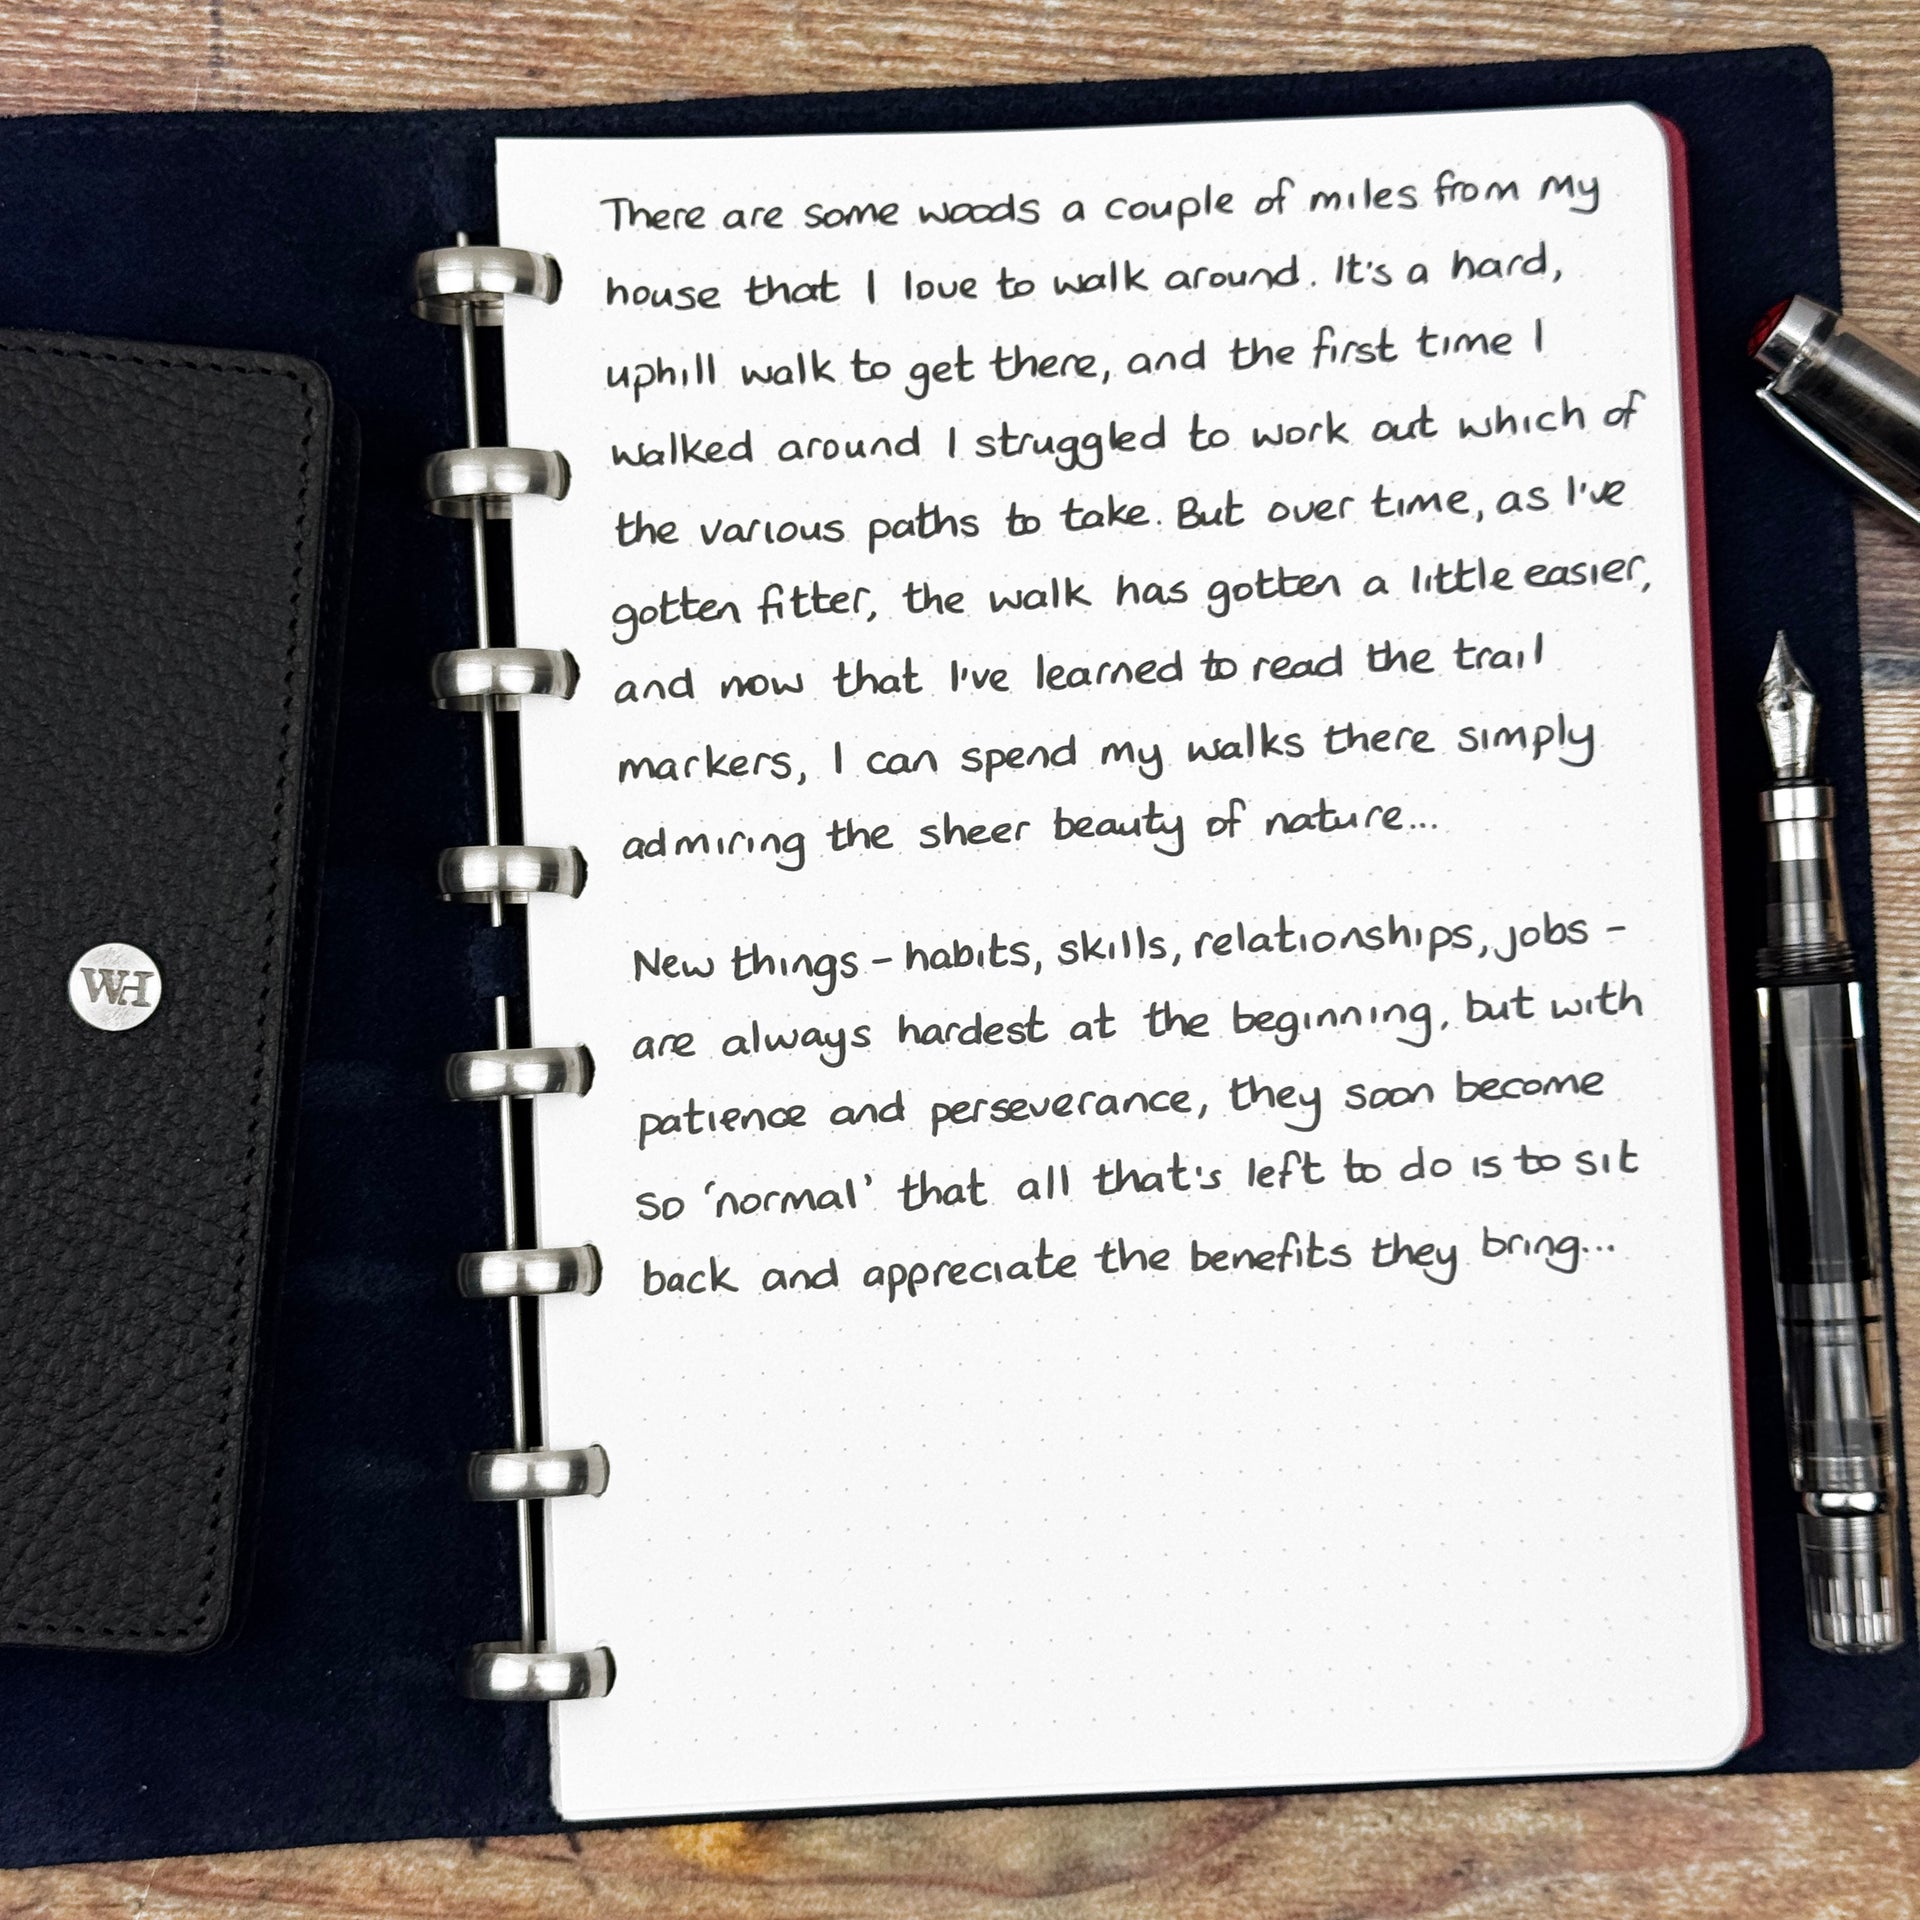 There are some woods a couple of miles from my
house that I love to walk around. It's a hard,
uphill walk to get there, and the first time I
walked around I struggled to work out which of
the various paths to take. But over time, as I've
gotten fitter, the walk has gotten a little easier,
and now that I've learned to read the trail
markers, I can spend my walks there simply
admiring the sheer beauty of nature...
New things – habits, skills, relationships, jobs –
are always hardest at the beginning, but with
patience and perseverance, they soon become
so 'normal' that all that's left to do is to sit
back and appreciate the benefits they bring...
WH